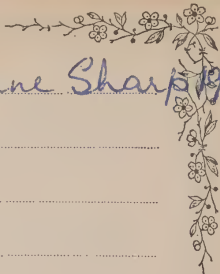 ne Sharp